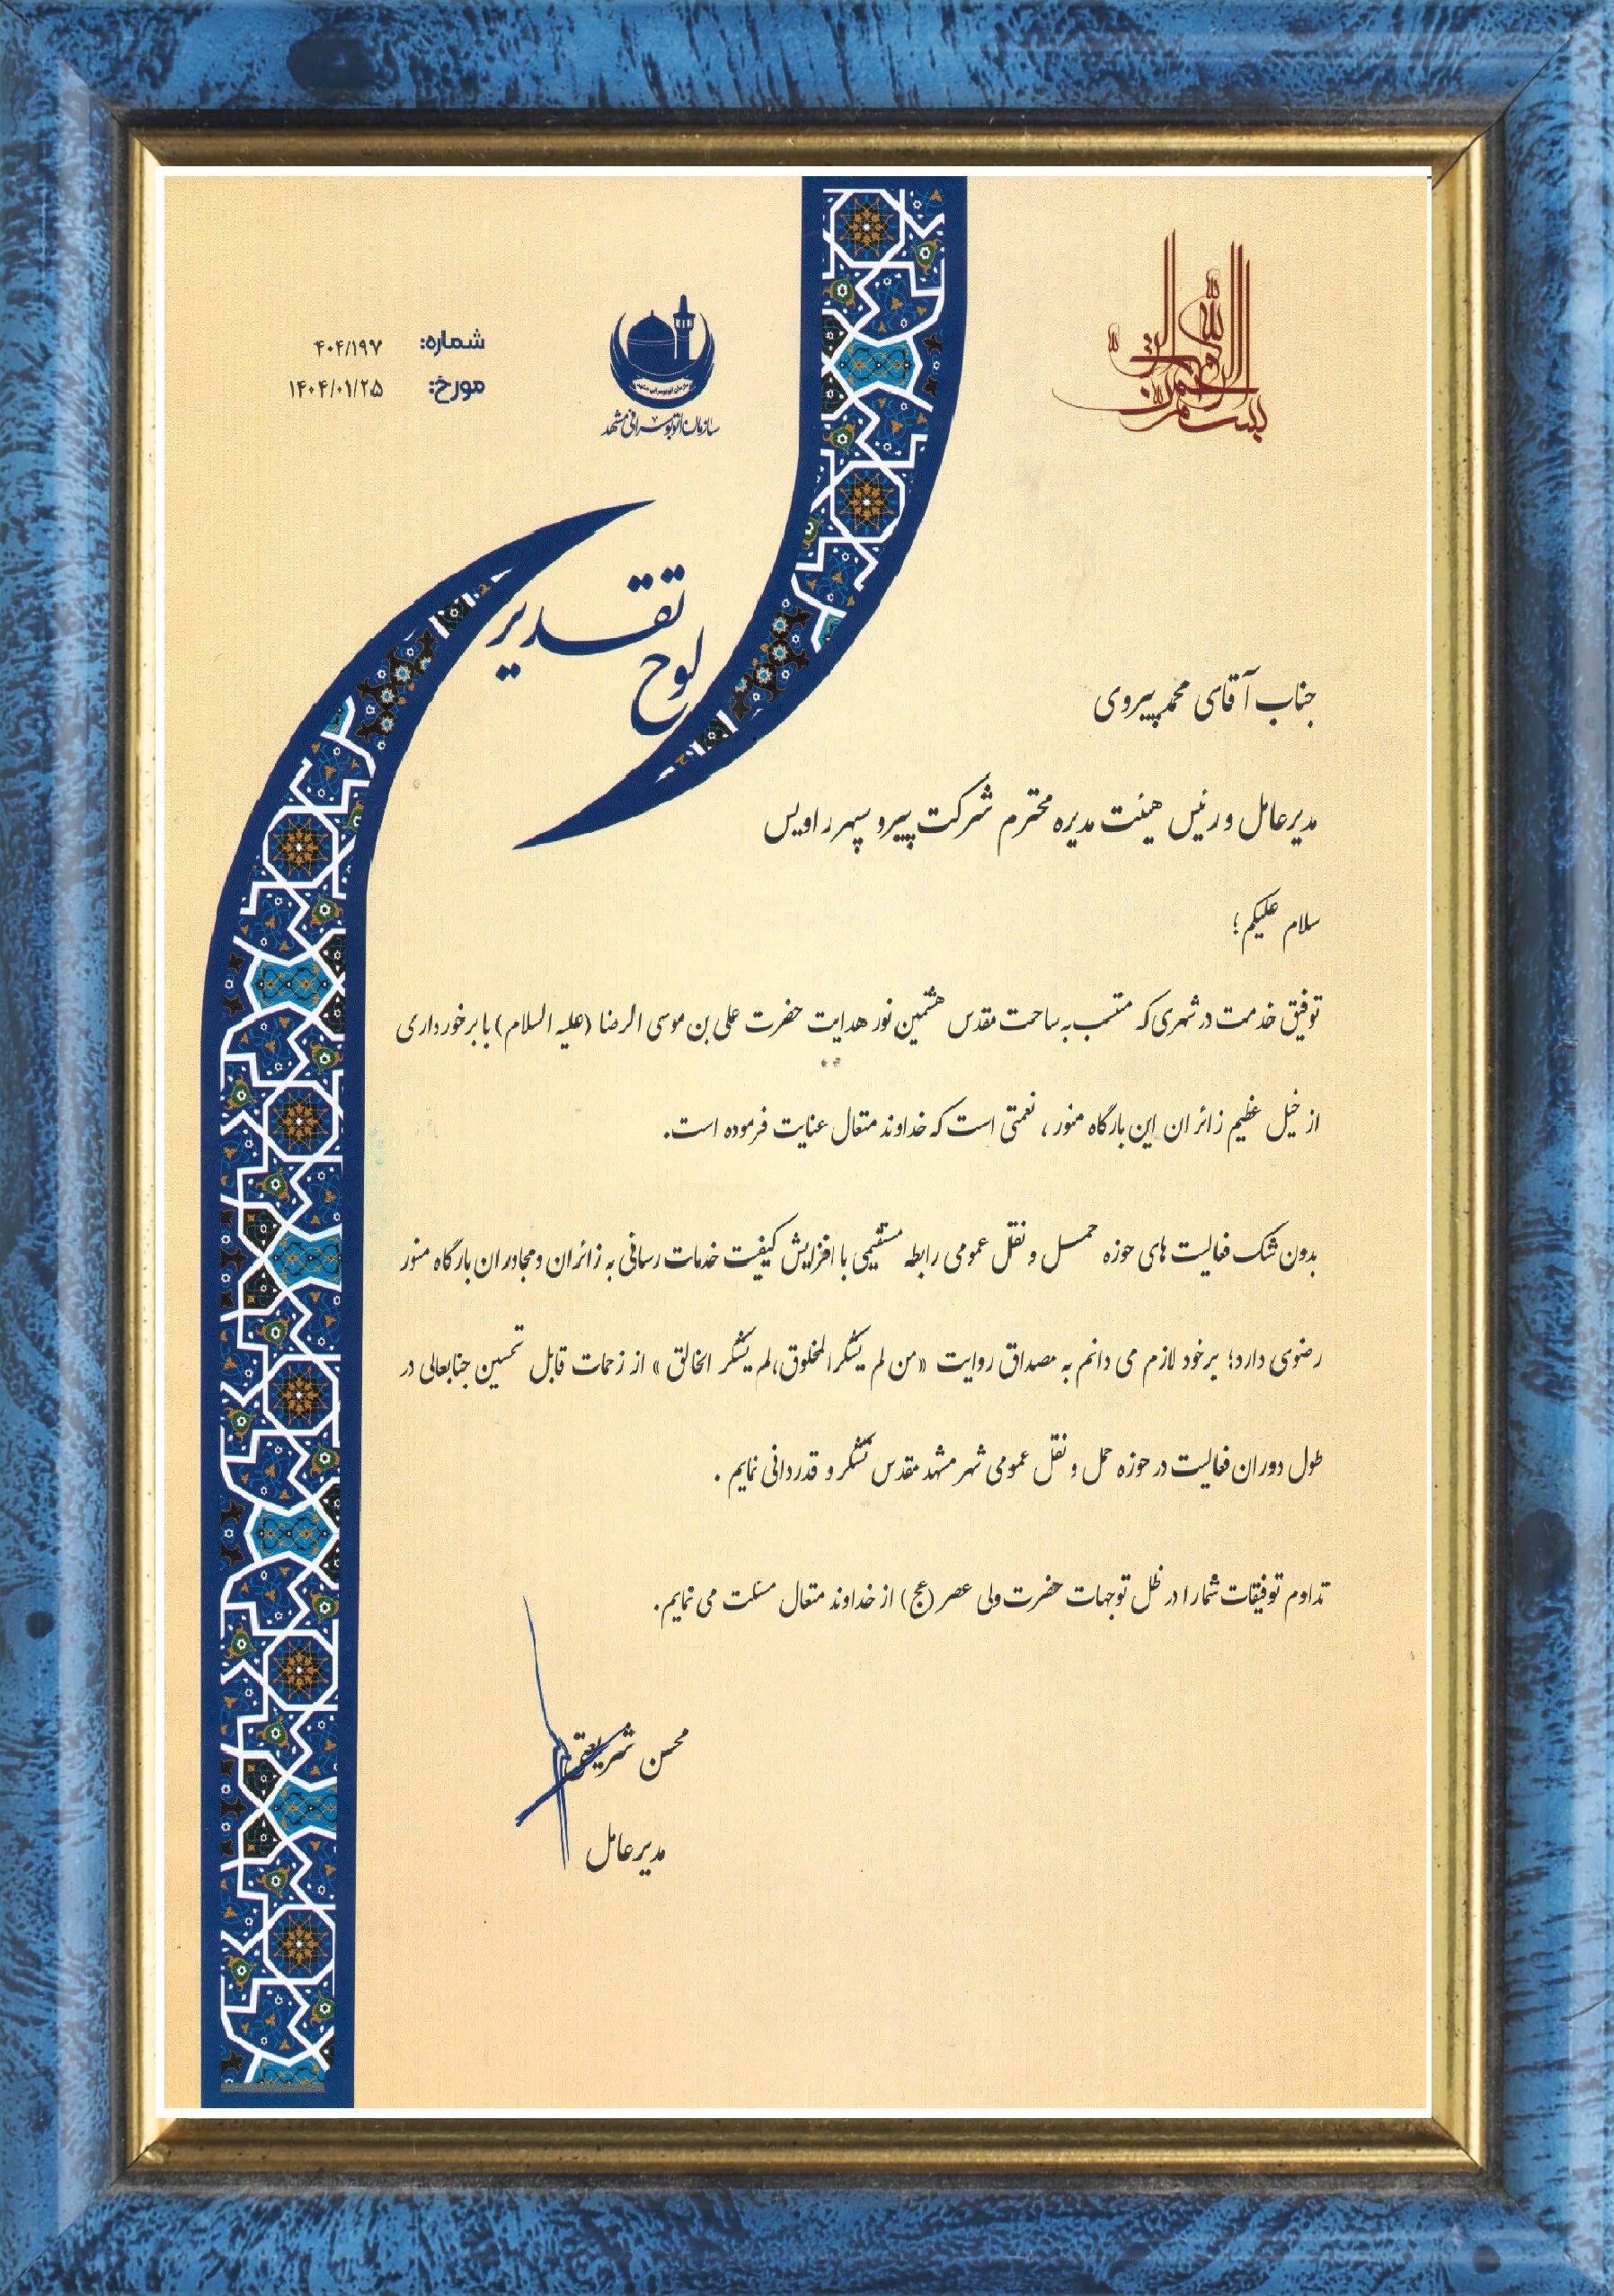 بسم الله الرحمن الرحیم
سازمان اتوبوسرانی مشهد
شماره: ۴۰۴/۱۹۷
مورخ: ۱۴۰۴/۰۱/۲۵
لوح تقدیر
جناب آقای محمد پیروی
مدیرعامل و رئیس هیئت مدیره محترم شرکت پیرو سپهر راویس
سلام علیکم؛
توفیق خدمت در شهری که منتسب به ساحت مقدس هشتمین نور هدایت حضرت علی بن موسی الرضا (علیه السلام) با برخورداری
از خیل عظیم زائران این بارگاه منور، نعمتی است که خداوند متعال عنایت فرموده است.
بدون شک فعالیت های حوزه حمل و نقل عمومی رابطه مستقیمی با افزایش کیفیت خدمات رسانی به زائران و مجاوران بارگاه منور
رضوی دارد؛ بر خود لازم می دانم به مصداق روایت «من لم یشکر المخلوق، لم یشکر الخالق» از زحمات قابل تحسین جنابعالی در
طول دوران فعالیت در حوزه حمل و نقل عمومی شهر مشهد مقدس تشکر و قدردانی نمایم.
تداوم توفیقات شما را در ظل توجهات حضرت ولی عصر (عج) از خداوند متعال مسئلت می نمایم.
محسن شریعتی
مدیرعامل